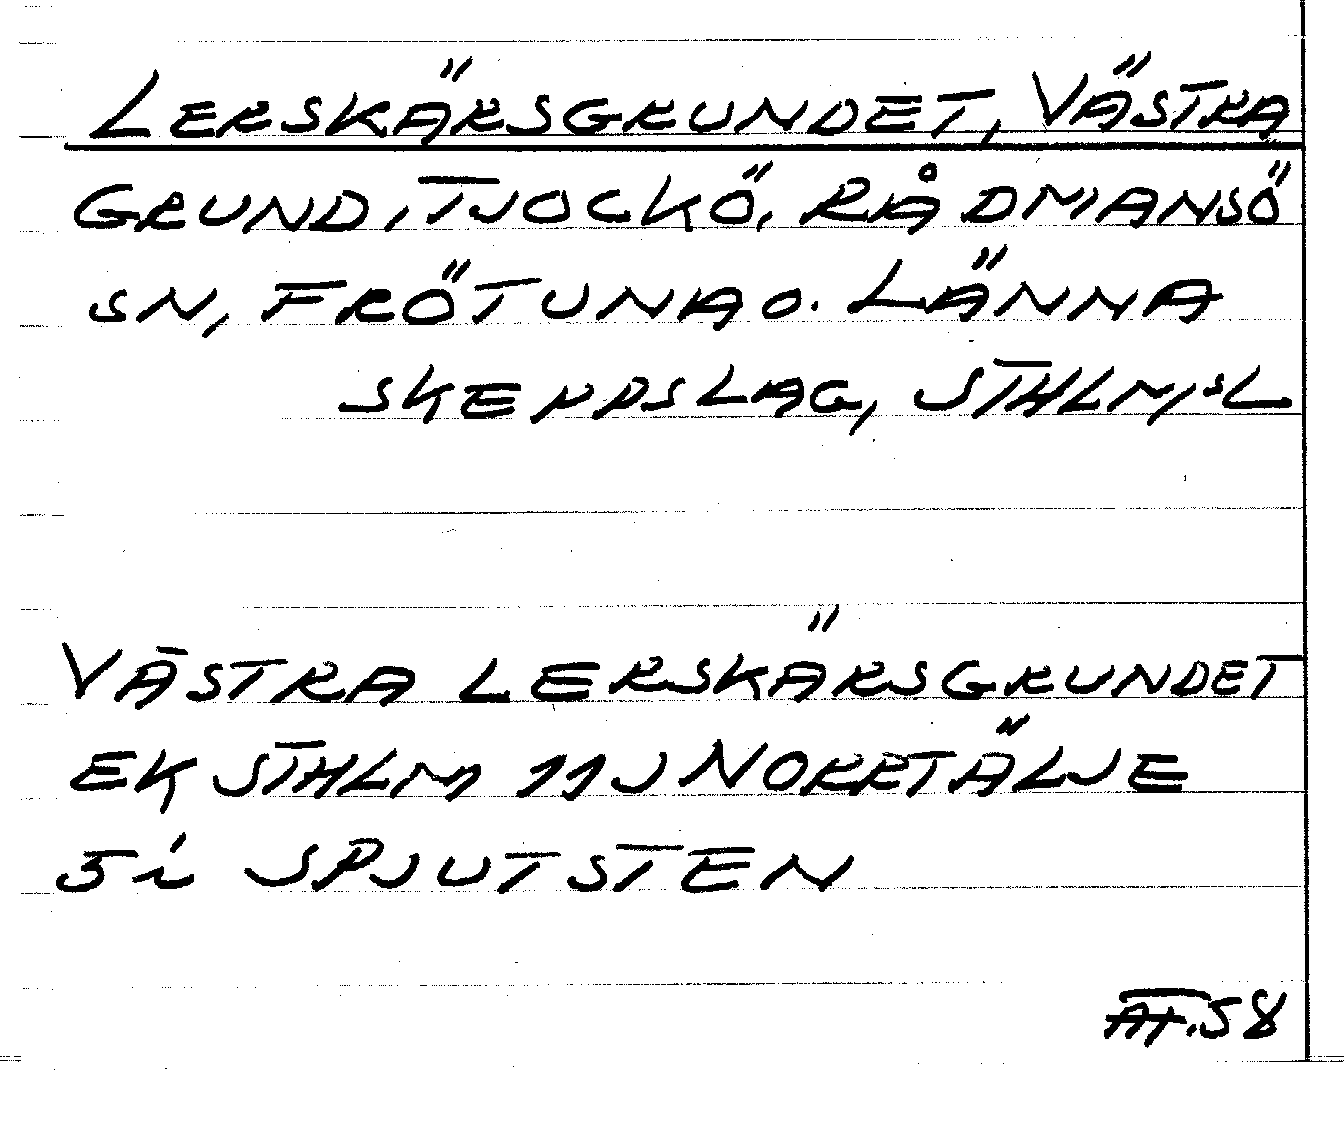 LERSKÄRSGRUNDET, VÄSTRA
GRUND, TJOCKÖ, RÅDMANSÖ
SN, FRÖTUNA O. LÄNNA
SKEPPSLAG, STHLMSL
VÄSTRA LERSKÄRSGRUNDET
EK STHLM 11J NORRTÄLJE
5i SPJUTSTEN
AT.58